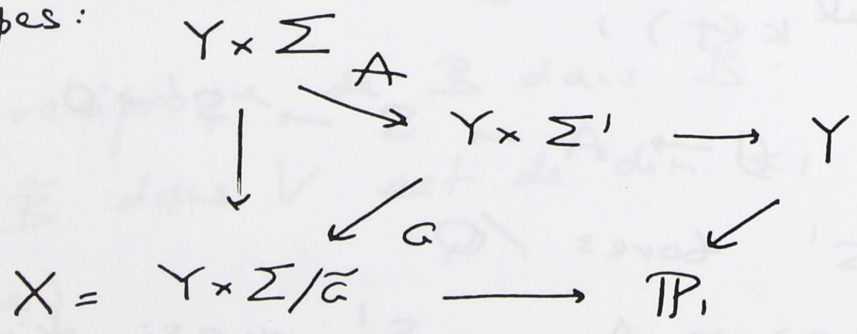 pes:
Y × Σ
A
Y × Σ' → Y
G
X = Y × Σ/G̃ → ℙ₁